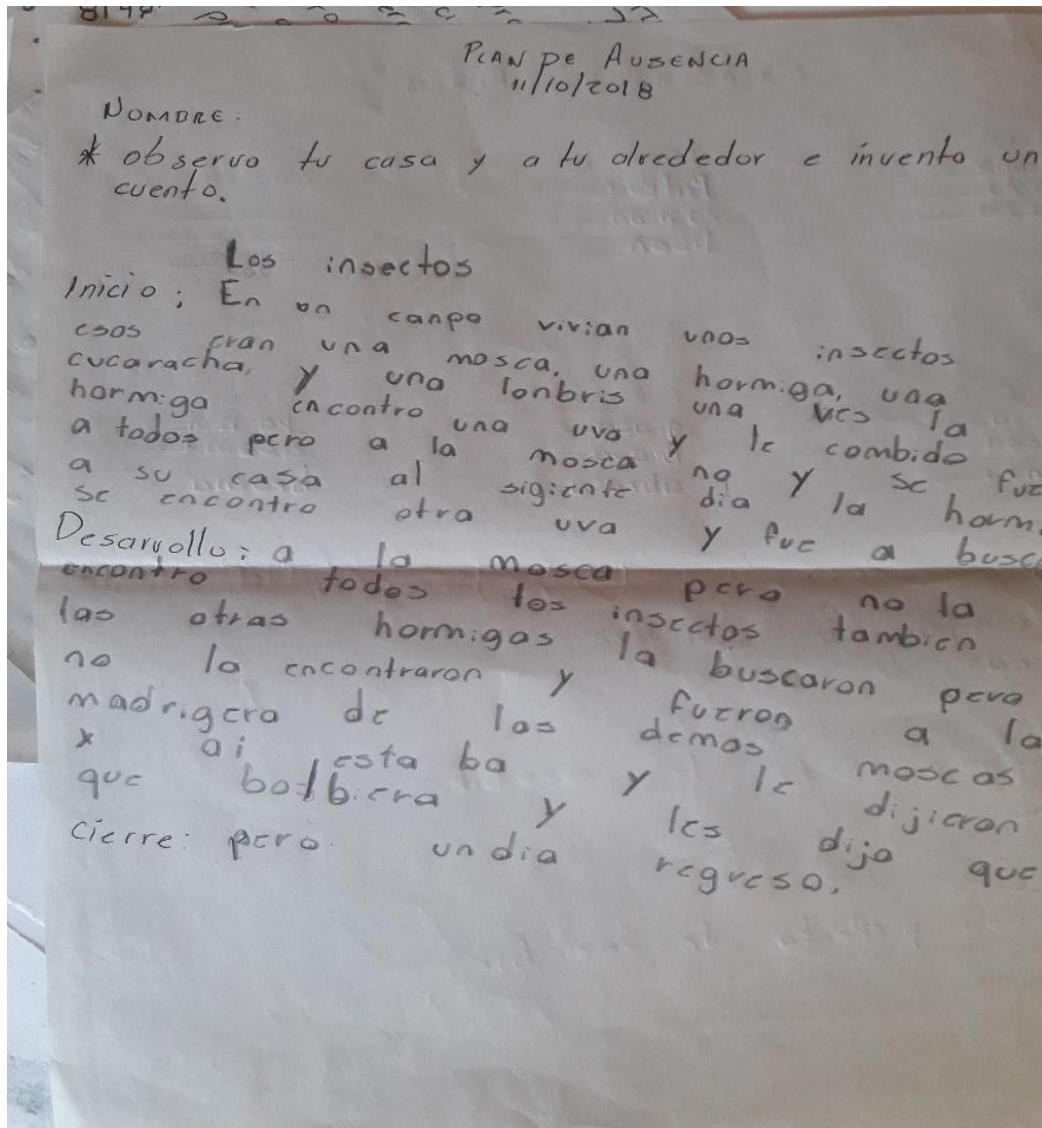 PLAN DE AUSENCIA
11/10/2018
NOMBRE.
* observo tu casa y a tu alrededor e invento un
cuento.
Los insectos
Inicio; En un canpo vivian unos insectos
esos eran una mosca, una hormiga, una
cucaracha, y una lonbris una ves la
hormiga encontro una uva y le combido
a todos pero a la mosca no y se fue
a su casa al sigiente dia la horm
se encontro otra uva y fue a busc
Desarrollo: a la mosca pero no la
encontro todos los insectos tambien
las otras hormigas la buscaron pero
no la encontraron y fueron a la
madrigera de las demas moscas
x ai estaba y le dijieron
que bolbiera y les dijo que
cierre: pero un dia regreso.